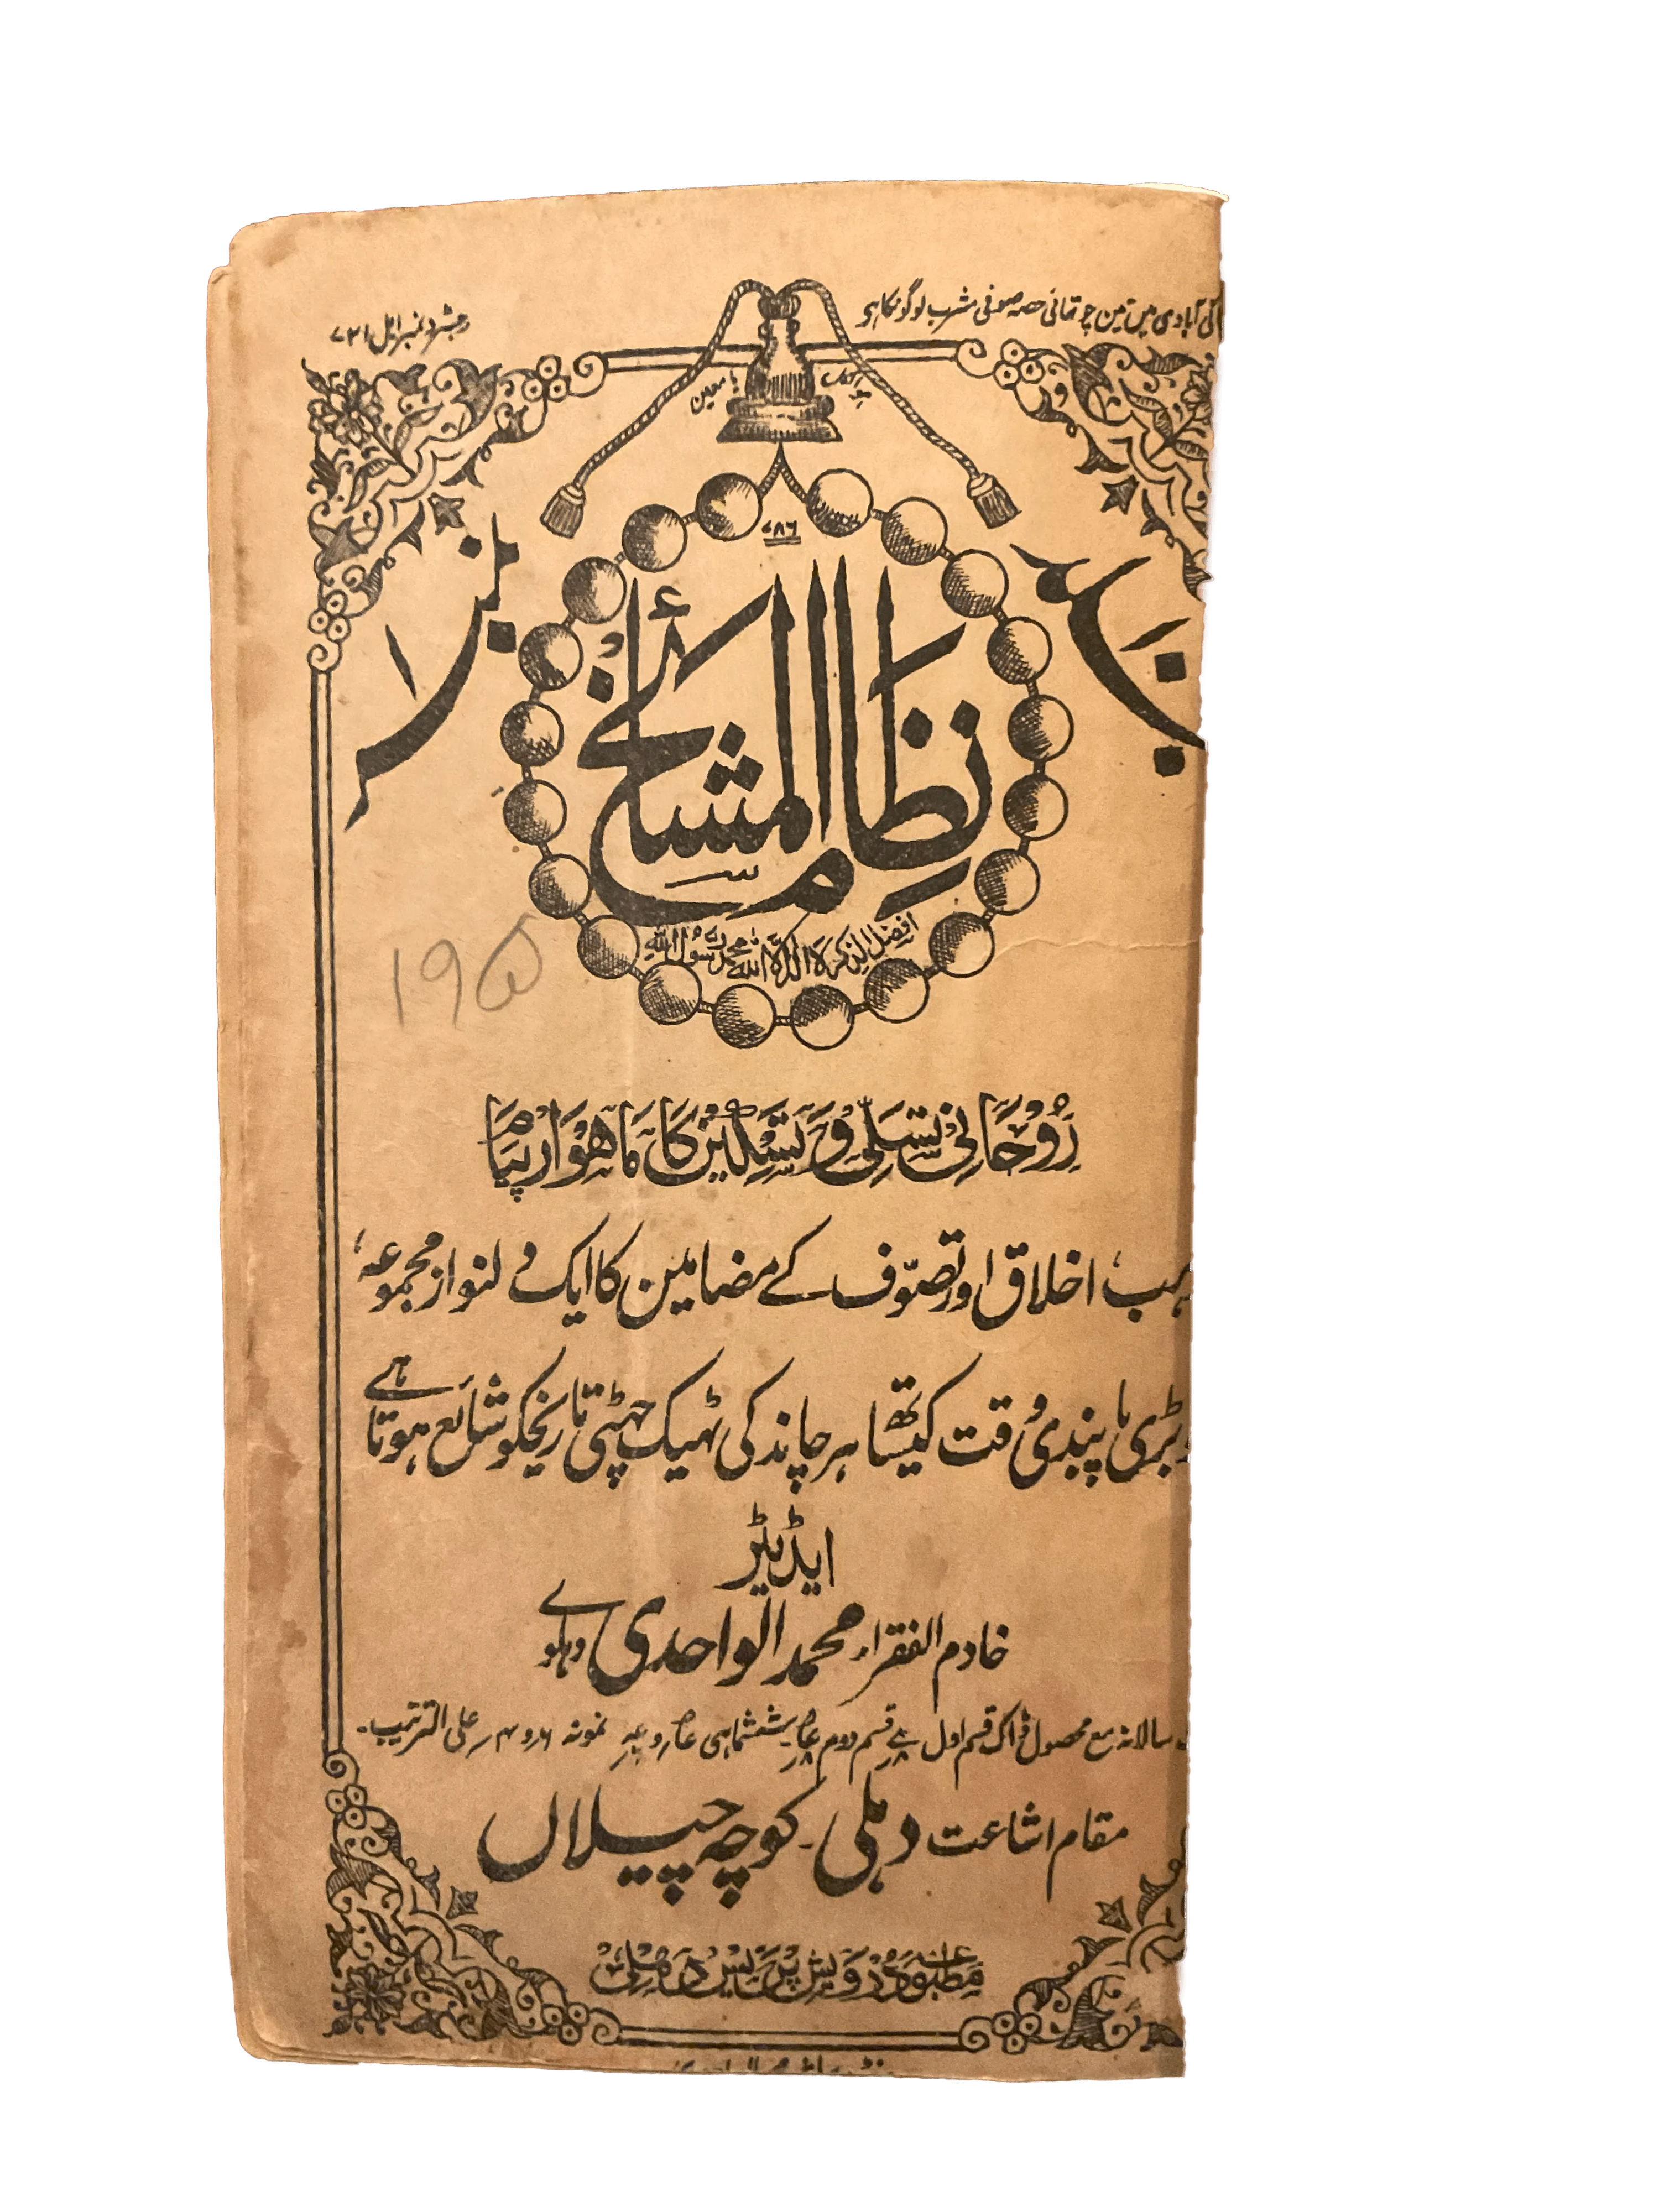 کی آبادی میں تین چوتھائی حصہ صوفی مشرب لوگونکا ہی
رجسٹرڈ نمبر ایل ۷۲۱
یا معین
جلد ۱۰
نمبر ۱
۷۸۶
نظام المشائخ
افضل الذکر لا الہ الا اللہ محمد رسول اللہ
195
روحانی تسلی و تسکین کا ماھوار پیام
ہب، اخلاق اور تصوّف کے مضامین کا ایک دلنواز مجموعہ،
بڑی پابندی وقت کیساتھ ہر چاند کی ٹھیک چھٹی تاریخکو شائع ہوتا ہے
ایڈیٹر
خادم الفقراء محمد الواحدی دہلوے
سالانہ مع محصول ڈاک قسم اول قسم دوم ششماہی نمونہ ۶ر و ۴ر علی الترتیب۔
مقام اشاعت دہلی۔ کوچہ چیلاں
مطبوعہ درویش پریس دہلی